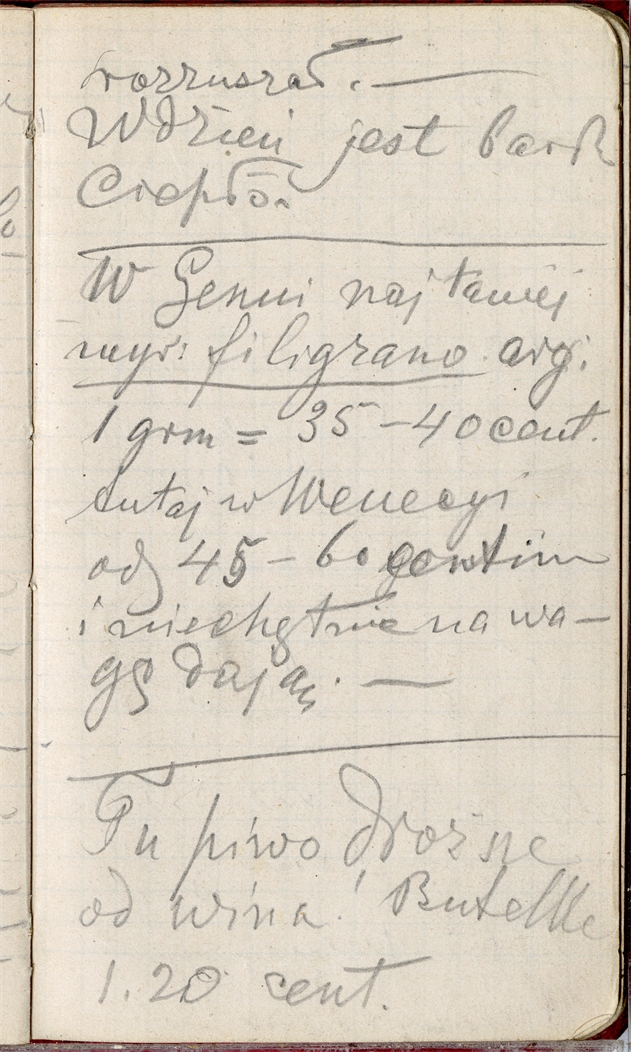 rozruszał. —
W dzień jest bardz
Ciepło.
W Genui najtaniej
wyr: filigrano arg.
1 grm = 35 – 40 cent.
tutaj w Wenecyi
od 45 – 60 centim
i niechętnie na wa–
gę dają. —
Tu piwo droższe
od wina! Butelke
1.20 cent.